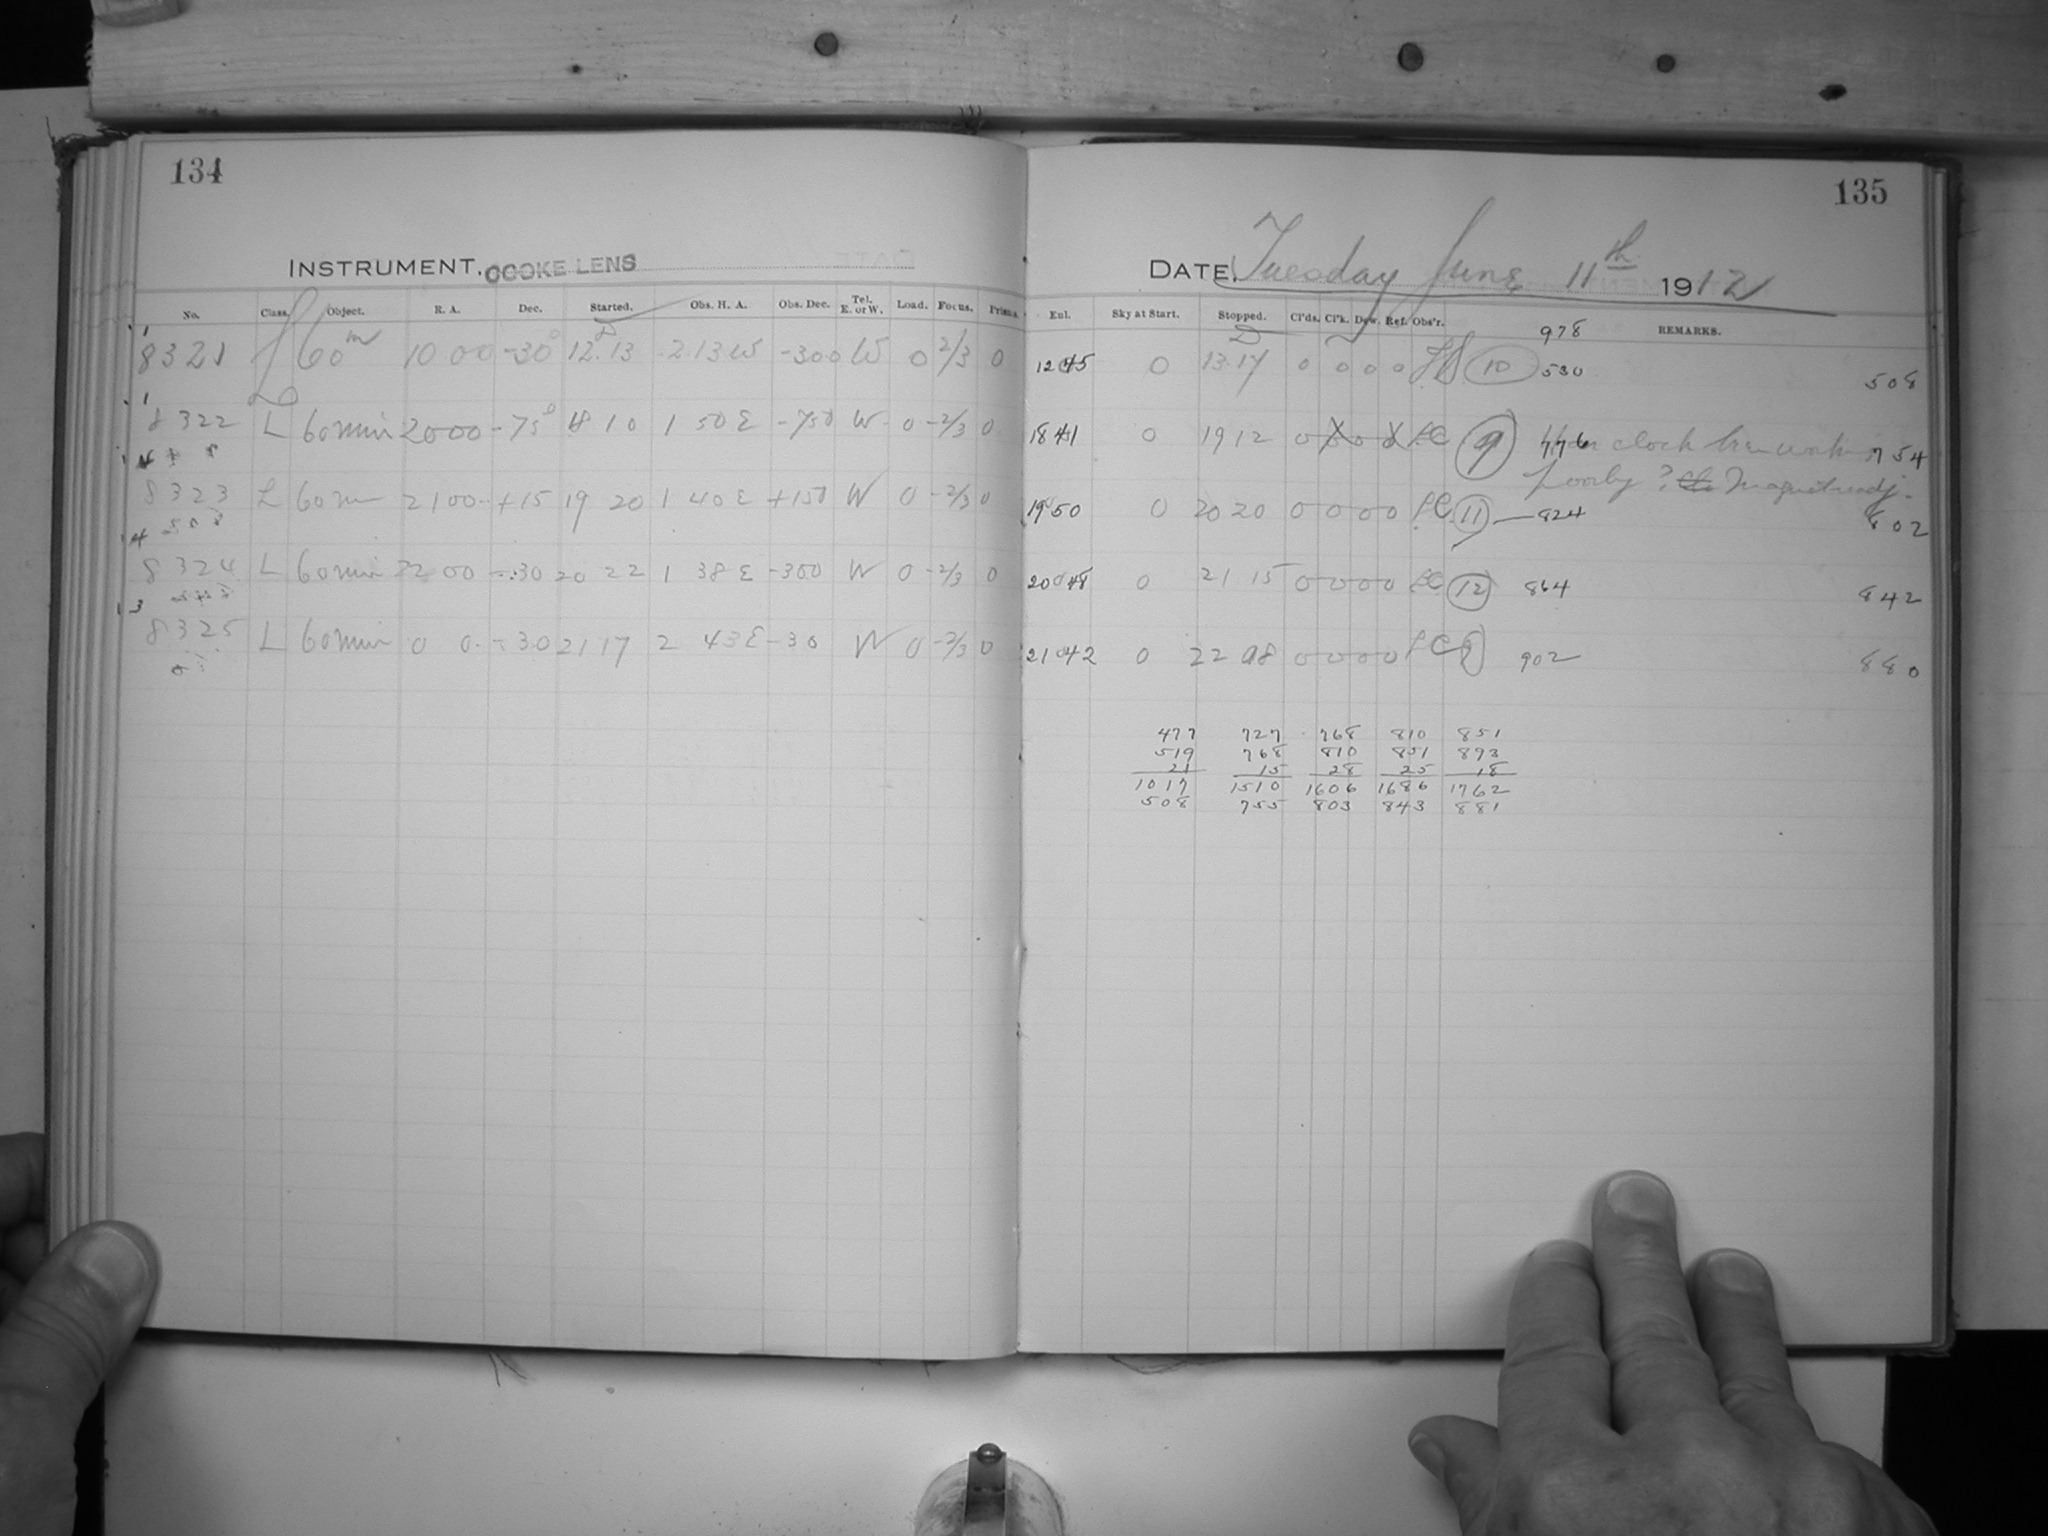 134
INSTRUMENT. COOKE LENS
No. Class. Object. R. A. Dec. Started. Obs. H. A. Obs. Dec. Tel. E. or W. Load. Focus. Prisms.
8321 L 60m 10 00 -30° 12.13 2 13 W -300 W 0 2/3 0
8322 L 60 min 20 00 -75° 18 10 1 50 E -750 W 0 -2/3 0
8323 L 60 m 21 00 +15 19 20 1 40 E +150 W 0 -2/3 0
8324 L 60 min 22 00 -30 20 22 1 38 E -300 W 0 -2/3 0
8325 L 60 min 0 0 -30 21 17 2 43 E -30 W 0 -2/3 0
135
DATE. Tuesday June 11th 1912
Eul. Sky at Start. Stopped. Cl'ds. Cl'k. Dew. Ref. Obs'r. 978 REMARKS.
12 45 0 13.17 0 0 0 0 10 530 508
18 41 0 19 12 0 X 0 X LC 9 776 clock 754
poorly?
19 50 0 20 20 0 0 0 0 LC 11 824 802
20 48 0 21 15 0 0 0 0 LC 12 864 842
21 42 0 22 08 0 0 0 0 LC 902 880
477 727 768 810 851
519 768 810 851 893
21 15 28 25 18
1017 1510 1606 1686 1762
508 755 803 843 881